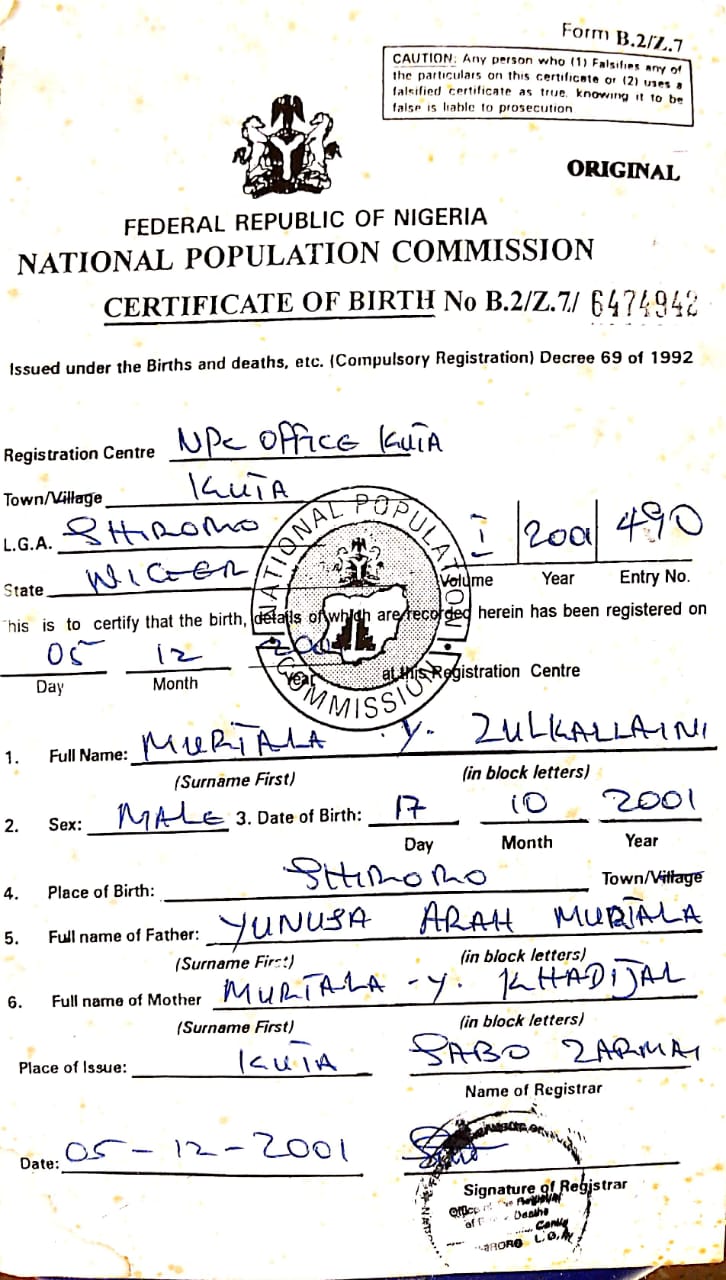 Form B.2/Z.7
CAUTION: Any person who (1) Falsifies any of
the particulars on this certificate or (2) uses a
falsified certificate as true, knowing it to be
false is liable to prosecution
ORIGINAL
FEDERAL REPUBLIC OF NIGERIA
NATIONAL POPULATION COMMISSION
CERTIFICATE OF BIRTH No B.2/Z.7/ 6474942
Issued under the Births and deaths, etc. (Compulsory Registration) Decree 69 of 1992
Registration Centre NPC OFFICE KUTA
Town/Village KUTA
L.G.A. SHIRORO
I 2001 490
State NIGER
Volume Year Entry No.
NATIONAL POPULATION COMMISSION
his is to certify that the birth, details of which are recorded herein has been registered on
05 12
Day Month Year at this Registration Centre
1. Full Name: MURTALA .Y. ZULKALLAINI
(Surname First) (in block letters)
2. Sex: MALE 3. Date of Birth: 17 10 2001
Day Month Year
4. Place of Birth: SHIRORO Town/Village
5. Full name of Father: YUNUSA ARAH MURTALA
(Surname First) (in block letters)
6. Full name of Mother MURTALA -Y. KHADIJAL
(Surname First) (in block letters)
Place of Issue: KUTA SABO ZARMAI
Name of Registrar
Date: 05-12-2001
Signature of Registrar
Office of the
Deaths
L.G.A